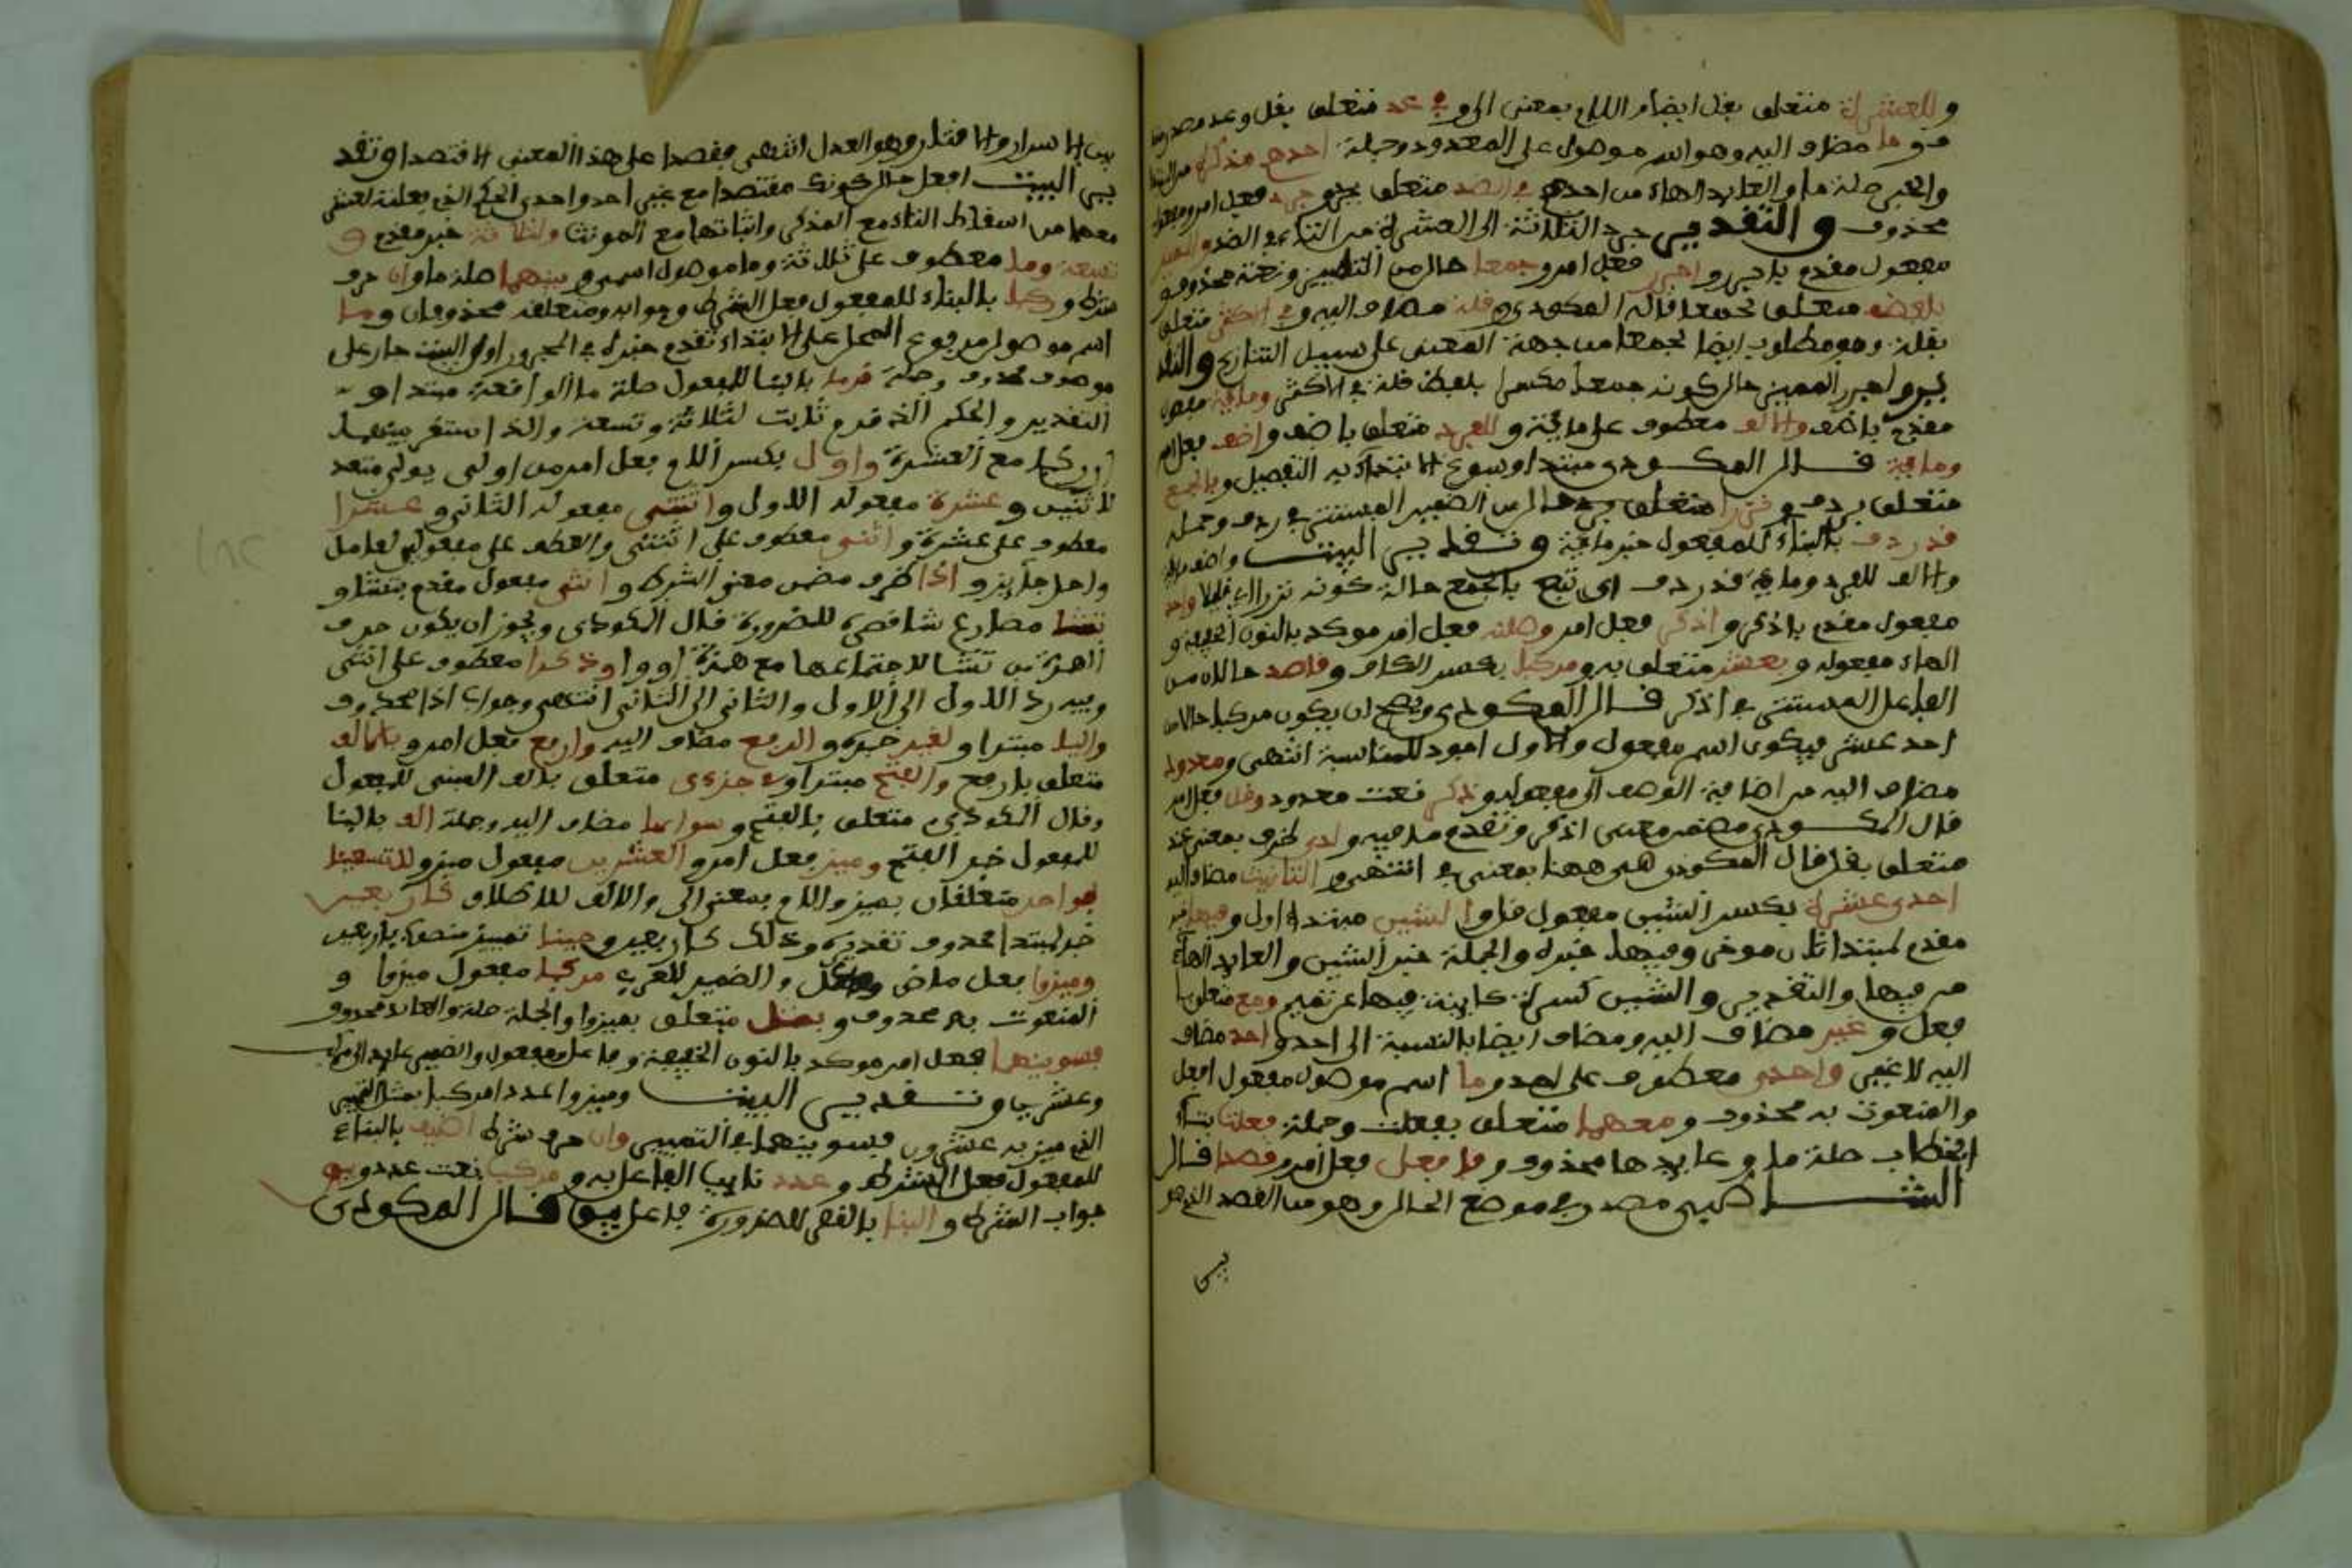 وللعشرة متعلق بقل ايضا واللام بمعنى الى وفي عد متعلق بقل وعد مصدر
وما مضاف اليه وهو اسم موصول على المعدود وجملة احده مذكره من المبتدا
والخبر صلة ما والعايد الهاء من احده في الضد متعلق بجرد وجرد فعل امر ومفعوله
محذوف والتقدير جرد الثلاثة الى العشرة من التاء في الضد والمميز
مفعول مقدم باجرر واجرر فعل امر وجمعا حال من المميز ونعته محذوف
بلفظ متعلق بجمعا قاله المكودي وقلة مضاف اليه وفي الاكثر متعلق
بقلة وهو مطلوب ايضا لجمعا من جهة المعنى على سبيل التنازع والتقد
ير واجرر المميز حال كونه جمعا مكسرا بلفظ قلة في الاكثر ومائة مفعول
مقدم باضف والالف معطوف على مائة وللفرد متعلق باضف واضف فعل امر
ومائة قال المكودي مبتدا وسوغ الابتداء به التفصيل وبالجمع
متعلق بردف ونزرا متعلق حال من الضمير المستتر في ردف وجملة
قد ردف بالبناء للمفعول خبر مائة وتقدير البيت واضف مائة
والالف للفرد ومائة قد ردف اي تبع بالجمع حالة كونه نزرا اي قليلا واحد
مفعول مقدم باذكر واذكر فعل امر وصلنه فعل امر موكد بالنون الخفيفة و
الهاء مفعوله وبعشر متعلق به ومركبا بكسر الكاف وقاصد حالان من
الفاعل المستتر في اذكر قال المكودي ويصح ان يكون مركبا حالا من
احد عشر فيكون اسم مفعول والاول اجود للمناسبة انتهى ومعدود
مضاف اليه من اضافة الوصف الى مفعوله وذكر نعت معدود وقل فعل امر
قال المكودي مضمن معنى اذكر وتقدم ما فيه ولدى ظرف بمعنى عند
متعلق بقل قال المكودي هي ههنا بمعنى في انتهى والتانيث مضاف اليه
احدى عشرة بكسر الشين مفعول قل والشين مبتدا اول وفيها خبر
مقدم لمبتدا ثان موخر وفيها خبره والجملة خبر الشين والعايد الهاء
من فيها والتقدير والشين كسرة كاينة فيها عن تميم ومع متعلق بها
فعل وغير مضاف اليه ومضاف ايضا بالنسبة الى احد واحد مضاف
اليه لا غير واحدى معطوف على احد وما اسم موصول مفعول افعل
والمنعوت به محذوف ومعهما متعلق بفعلت وجملة فعلت بتاء
الخطاب صلة ما وعايدها محذوف وفافعل فعل امر وقصدا قال
الشاطبي مصدر في موضع الحال وهو من القصد الذي هو
بين
بين الاسراف والاقتار وهو العدل انتهى فقصدا على هذا المعنى الاقتصاد وتقد
ير البيت افعل حال كونك مقتصدا مع غير احد واحدى الحكم الذي فعلته لعشر
معهما من اسقاط التاء مع المذكر واثباتها مع المونث ولثلاثة خبر مقدم و
تسعة وما معطوف على ثلاثة وما موصول اسمي وبينهما صلة ما وان حرف
شرط وركبا بالبناء للمفعول فعل الشرط وجوابه ومتعلقه محذوفان وما
اسم موصول مرفوع المحل على الابتداء تقدم خبره في المجرور اول البيت جار على
موصوف محذوف وجملة قدما بالبنا للمفعول صلة ما الواقعة مبتدا و
التقدير والحكم الذي قدم ثابت لثلاثة وتسعة والذي استقر بينهما
ان ركبا مع العشرة واول بكسر اللام فعل امر من اولى يولي متعد
لاثنين وعشرة مفعوله الاول واثنتي مفعوله الثاني وعشرا
معطوف على عشرة واثني معطوف على اثنتي والعطف على معمولي عامل
واحد جايز واذا ظرف مضمن معنى الشرط وانثى مفعول مقدم بتشا و
تشا مضارع شا قصره للضرورة قال المكودي ويجوز ان يكون حذف
الهمزة من تشا لاجتماعها مع همزة او واو وذكرا معطوف على انثى
وفيه رد الاول الى الاول والثاني الى الثاني انتهى وجواب اذا محذوف
واليا مبتدا ولغير خبره والرفع مضاف اليه وارفع فعل امر وبالالف
متعلق بارفع والفتح مبتدا وفي جزءي متعلق بالف المبني للمفعول
وقال المكودي متعلق بالفتح وسواهما مضاف اليه وجملة الف بالبنا
للمفعول خبر الفتح وميز فعل امر والعشرين مفعول ميز وللتسعينا
بواحد متعلقان بميز واللام بمعنى الى والالف للاطلاق كاربعين
خبر لمبتدا محذوف تقديره وذلك كاربعين وحينا تمييز منصوب باربعين
وميزوا فعل ماض وفاعل والضمير للعرب مركبا مفعول ميزوا و
المنعوت به محذوف وبمثل متعلق بميزوا والجملة صلة والعايد محذوف
فسوينهما فعل امر موكد بالنون الخفيفة وفاعل ومفعول والضمير عايد الى مركب
وعشرين وتقدير البيت وميزوا عددا مركبا بمثل التمييز
الذي ميز به عشرون فسوينهما في التمييز وان حرف شرط اضيف بالبناء
للمفعول فعل الشرط وعدد نايب الفاعل به ومركب نعت عدد ويبق
جواب الشرط والبنا بالقصر للضرورة فاعل يبق قال المكودي